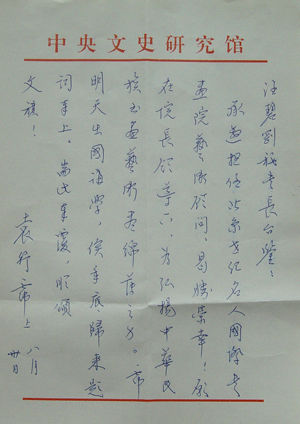 中央文史研究馆
汪碧刚秘书长台鉴：
承邀担任北京世纪名人国际书
画院艺术顾问，曷胜荣幸！愿
在院长领导下，为弘扬中华民
族书画艺术尽绵薄之力。
明天出国讲学，俟年底归来题
词奉上。耑此奉覆，即颂
文祺！
袁行霈上
八月
廿日